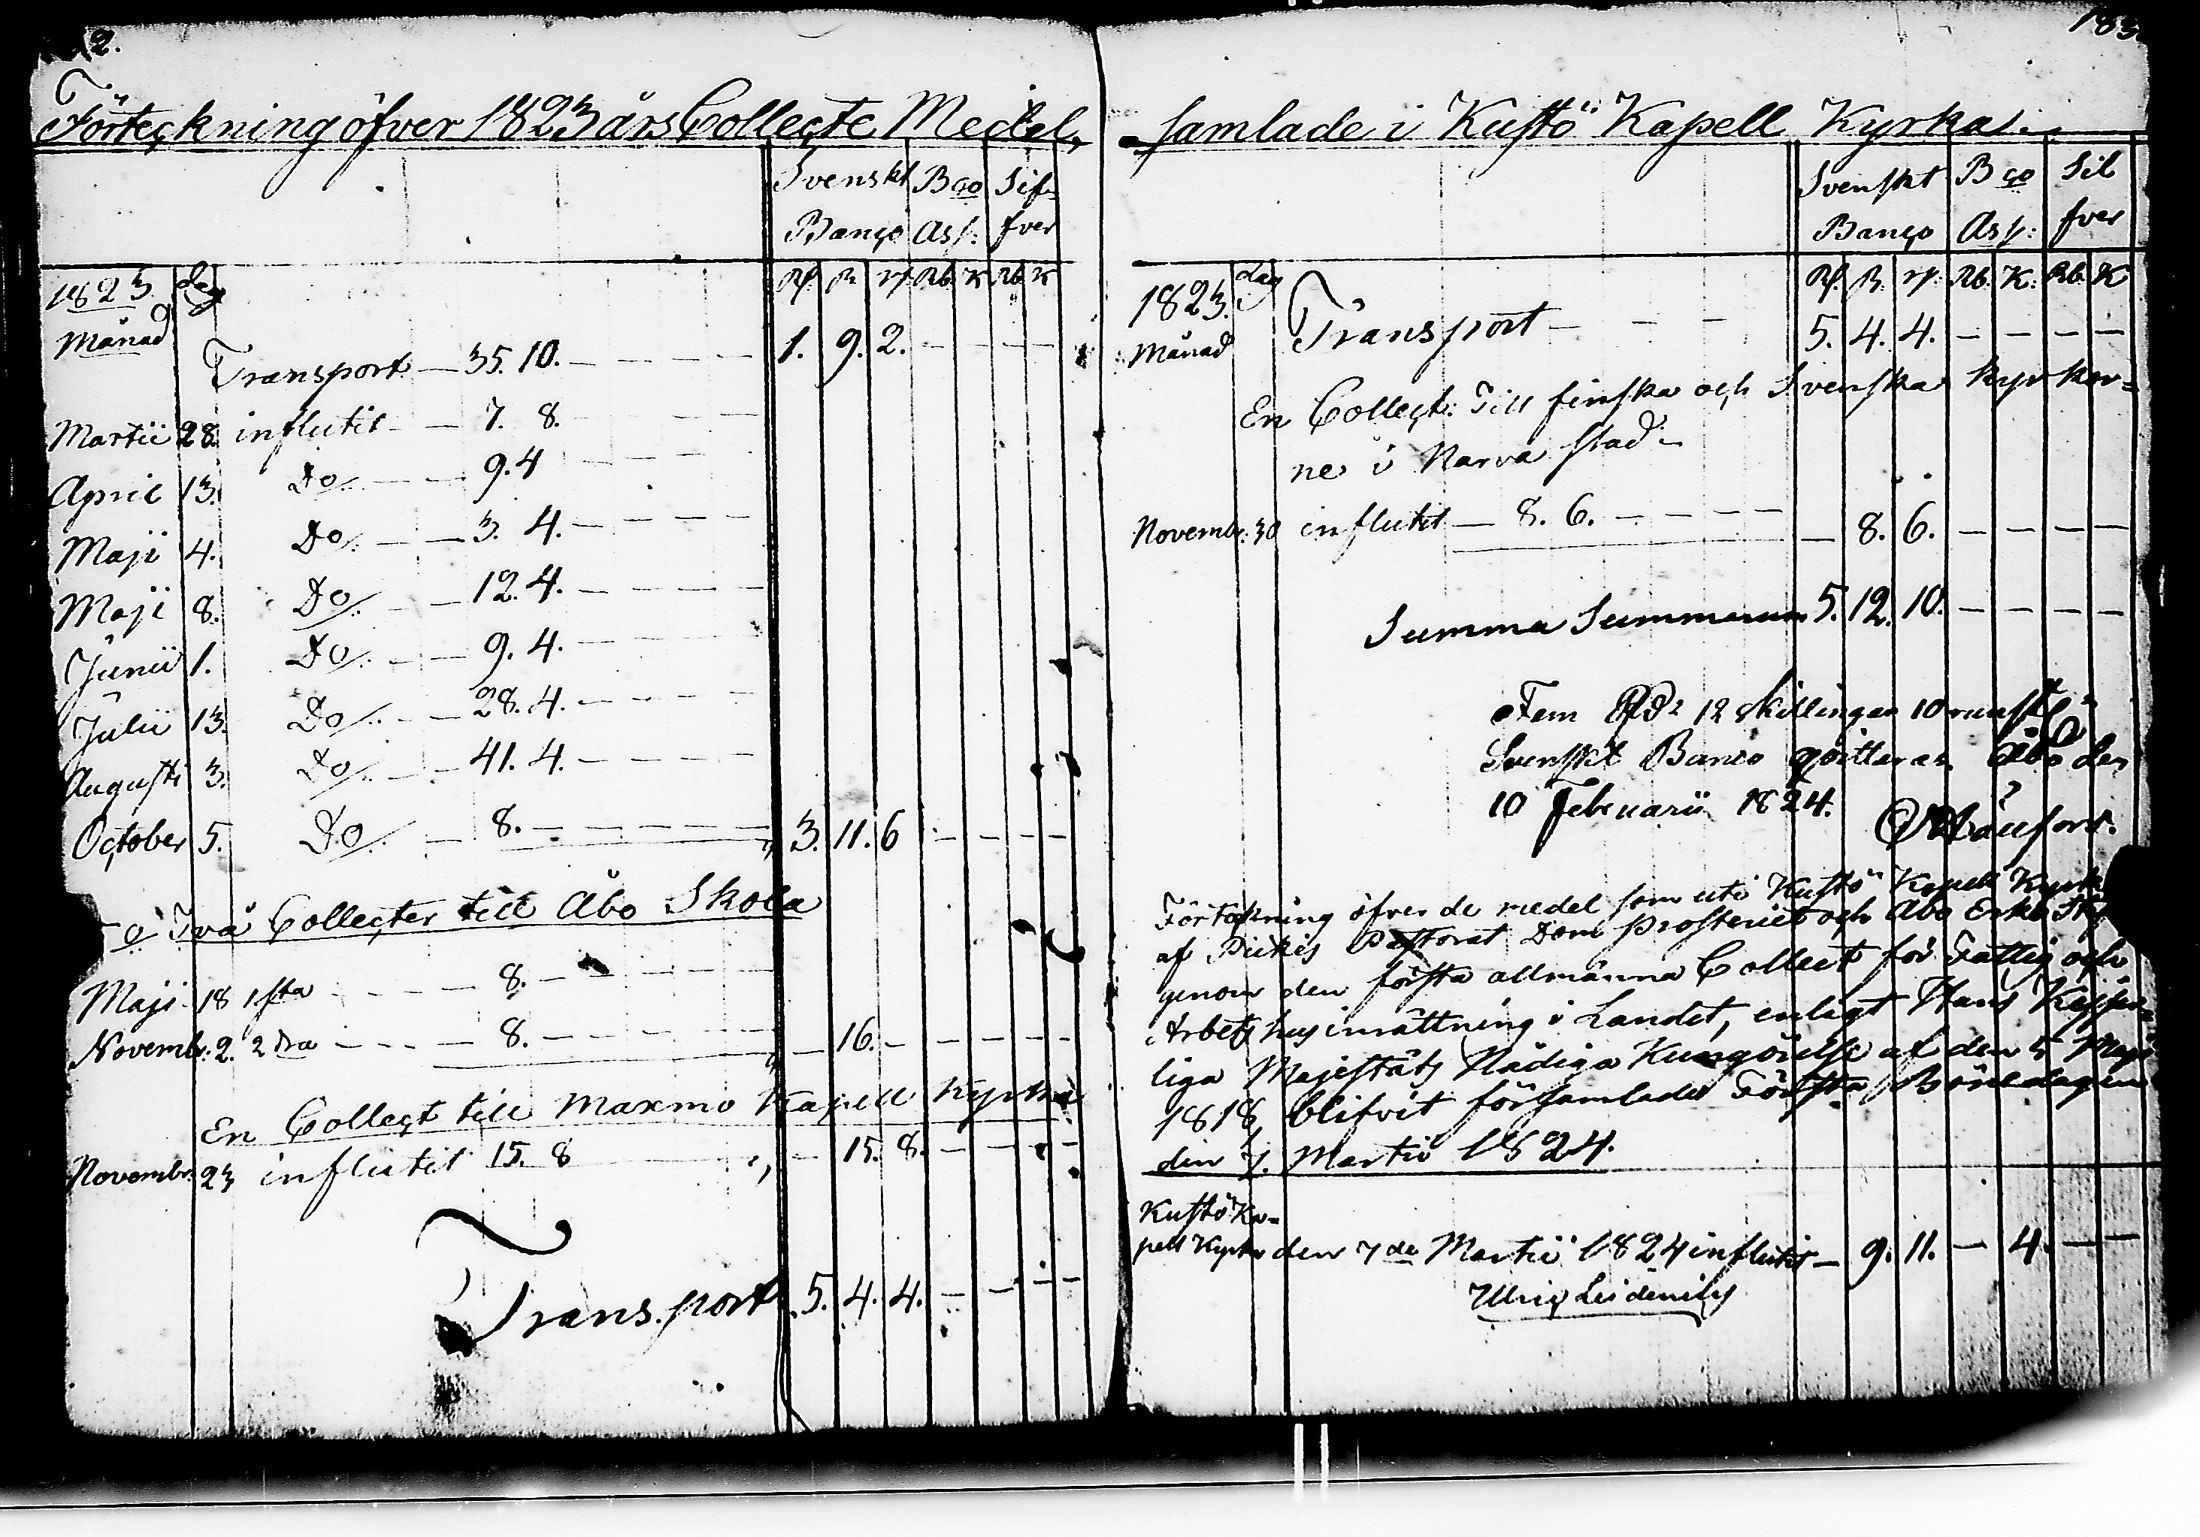 2.
Förteckning öfver 1823 års Collecte Medel,
Svenskt Bco Sif-
Banco Ass: fver
1823. dag Rd. ß. rs. Rb. K Rb. K
Månad
Transport — 35. 10. — — — — 1. 9. 2. — — — —
Martii 28. influtit — — 7. 8. — — — —
April 13. Do/. — — 9. 4 — — — —
Maji 4. Do/. — — 3. 4. — — — —
Maji 8. Do/. — — 12. 4. — — — —
Junii 1. Do/. — — 9. 4. — — — —
Julii 13. Do/. — — 28. 4. — — — —
Augusti 3. Do/. — — 41. 4. — — — —
October 5. Do/. — 8. — — — — — 3. 11. 6 — — — —
Två Collecter till Åbo Skola
Maji 18 1sta — — — — 8. — — — —
Novemb. 2. 2dra — — — — 8. — — — — — 16. — — — — —
En Collect till Maxmo Kapell Kyrka
Novembr. 23 influtit 15. 8 — 15. 8. — — — —
Transport 5. 4. 4. — — — —
samlade i Kustö Kapell Kyrka
Svenskt Bco Sil
Banco Ass: fver
1823. dag Rd. ß. rs. Rb. K. Rb. K
Månad Transport — — — — 5. 4. 4. — — — —
En Collect: Till finska och Svenska Kyrkor=
ne i Narva stad —
Novembr. 30 influtit — 8. 6. — — — — — 8. 6. — — — —
Summa Summarum 5. 12. 10. — — — —
Fem Rdr 12 skillingar 10 runst
Svenskt Banco qvitteras Åbo den
10 Februarii 1824.
Förtekning öfver de medel som uti Kustö Kapell Kyrk
af Pickis Pastorat Dom Prosteriet och Åbo Erke
genom den första allmänna Collect för Fattig och
Arbets hus inrättning i Landet, enligt Hans Kejser=
liga Majestäts Nådiga Kungörelse af den 5 Maji
1818, blifvit församlade Första Bönedagen
den 7. Martii 1824.
Kustö Ka=
pell Kyrka den 7de Martii 1824 influtit — 9. 11. — 4. — —